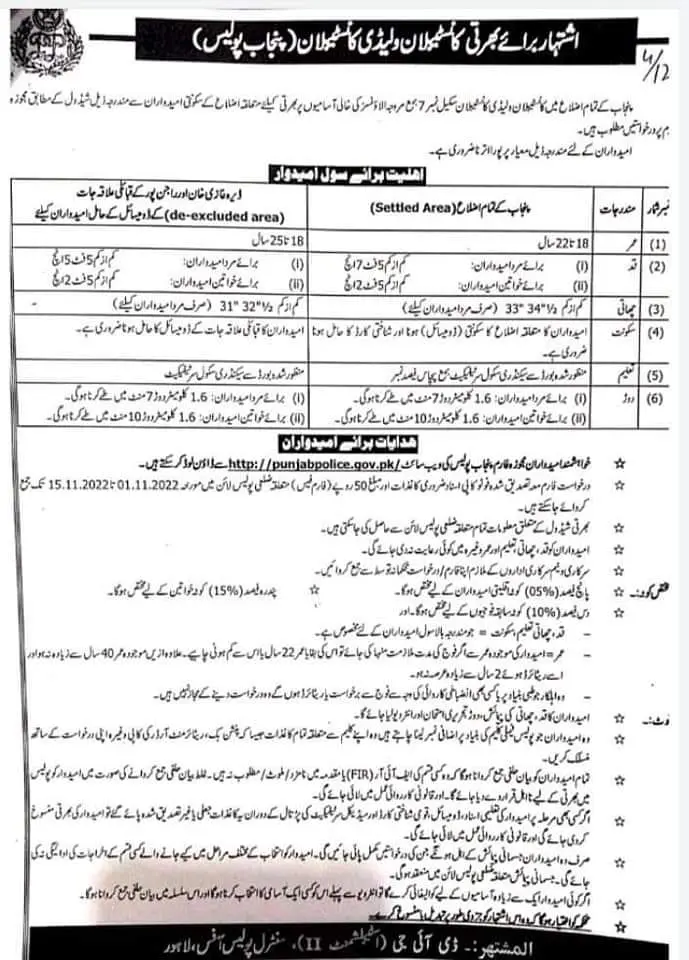 اشتہار برائے بھرتی کانسٹیبلان ولیڈی کانسٹیبلان (پنجاب پولیس)
4/12
پنجاب کے تمام اضلاع میں کانسٹیبلان ولیڈی کانسٹیبلان سکیل نمبر 7 بمع مروجہ الاؤنسز کی خالی آسامیوں پر بھرتی کیلئے متعلقہ اضلاع کے سکونتی امیدواران سے مندرجہ ذیل شیڈول کے مطابق مجوزہ
فارم پر درخواستیں مطلوب ہیں۔
امیدواران کے لئے مندرجہ ذیل معیار پر پورا اترنا ضروری ہے۔
اہلیت برائے سول امیدوار
نمبر شمار مندرجات پنجاب کے تمام اضلاع (Settled Area) ڈیرہ غازی خان اور راجن پور کے قبائلی علاقہ جات
(de-excluded area) کے ڈومیسائل کے حامل امیدواران کیلئے
(1) عمر 18 تا 22 سال 18 تا 25 سال
(2) قد (i) برائے مرد امیدواران: کم از کم 5 فٹ 7 انچ (i) برائے مرد امیدواران: کم از کم 5 فٹ 5 انچ
(ii) برائے خواتین امیدواران: کم از کم 5 فٹ 2 انچ (ii) برائے خواتین امیدواران: کم از کم 5 فٹ 2 انچ
(3) چھاتی کم از کم 33" 34½" (صرف مرد امیدواران کیلئے) کم از کم 31" 32½" (صرف مرد امیدواران کیلئے)
(4) سکونت امیدواران کا متعلقہ اضلاع کا سکونتی (ڈومیسائل) ہونا اور شناختی کارڈ کا حامل ہونا امیدواران کا قبائلی علاقہ جات کے ڈومیسائل کا حامل ہونا ضروری ہے۔
ضروری ہے۔
(5) تعلیم منظور شدہ بورڈ سے سیکنڈری سکول سرٹیفکیٹ بمع پچاس فیصد نمبر منظور شدہ بورڈ سے سیکنڈری سکول سرٹیفکیٹ
(6) دوڑ (i) برائے مرد امیدواران: 1.6 کلومیٹر دوڑ 7 منٹ میں طے کرنا ہوگی۔ (i) برائے مرد امیدواران: 1.6 کلومیٹر دوڑ 7 منٹ میں طے کرنا ہوگی۔
(ii) برائے خواتین امیدواران: 1.6 کلومیٹر دوڑ 10 منٹ میں طے کرنا ہوگی۔ (ii) برائے خواتین امیدواران: 1.6 کلومیٹر دوڑ 10 منٹ میں طے کرنا ہوگی۔
ہدایات برائے امیدواران
☆ خواہشمند امیدواران مجوزہ فارم پنجاب پولیس کی ویب سائٹ http://punjabpolice.gov.pk/ سے ڈاؤن لوڈ کر سکتے ہیں۔
☆ درخواست فارم معہ تصدیق شدہ فوٹو کاپی اسناد ضروری کاغذات اور مبلغ 50 روپے (فارم فیس) متعلقہ ضلعی پولیس لائن میں مورخہ 01.11.2022 تا 15.11.2022 تک جمع
کروائے جا سکتے ہیں۔
☆ بھرتی شیڈول کے متعلق معلومات تمام متعلقہ ضلعی پولیس لائن سے حاصل کی جا سکتی ہیں۔
☆ امیدواران کو قد، چھاتی، تعلیم اور عمر وغیرہ میں کوئی رعایت نہ دی جائے گی۔
☆ سرکاری و نیم سرکاری اداروں کے ملازم اپنا فارم/درخواست محکمانہ توسط سے جمع کروائیں۔
مختص کوٹہ:۔ ☆ پانچ فیصد (05%) کوٹہ اقلیتی امیدواران کے لیے مختص ہوگا۔ ☆ پندرہ فیصد (15%) کوٹہ خواتین کے لیے مختص ہوگا۔
☆ دس فیصد (10%) کوٹہ سابقہ فوجیوں کے لیے مختص ہوگا۔ اور
- قد، چھاتی، تعلیم، سکونت = جو مندرجہ بالا سول امیدواران کے لئے مخصوص ہے۔
- عمر = امیدوار کی موجودہ عمر سے اگر فوج کی مدت ملازمت منہا کی جائے تو اس کی بقایا عمر 22 سال یا اس سے کم ہونی چاہیے۔ علاوہ ازیں موجودہ عمر 40 سال سے زیادہ نہ ہو اور
اسے ریٹائرڈ ہوئے 2 سال سے زیادہ عرصہ نہ ہو۔
- وہ اہلکار جو طبی بنیاد پر یا کسی بھی انضباطی کارروائی کی وجہ سے فوج سے برخواست یا ریٹائرڈ ہوں گے وہ درخواست دینے کے مجاز نہیں ہیں۔
نوٹ:۔ ☆ امیدواران کا قد، چھاتی کی پیمائش، دوڑ، تحریری امتحان اور انٹرویو لیا جائے گا۔
☆ وہ امیدواران جو پولیس فیملی کلیم کی بنیاد پر اضافی نمبر لینا چاہتے ہیں وہ اپنے کلیم سے متعلقہ تمام کاغذات جیسا کہ پنشن بک، ریٹائرمنٹ آرڈر کی کاپی وغیرہ اپنی درخواست کے ساتھ
منسلک کریں۔
☆ تمام امیدواران کو بیان حلفی جمع کروانا ہوگا کہ وہ کسی قسم کی ایف آئی آر (FIR) یا مقدمہ میں نامزد/ملوث/مطلوب نہ ہیں۔ غلط بیان حلفی جمع کروانے کی صورت میں امیدوار کو پولیس
میں بھرتی کے لیے نا اہل قرار دے دیا جائے گا۔ اور قانونی کارروائی عمل میں لائی جائے گی۔
☆ اگر کسی بھی مرحلہ پر امیدوار کی تعلیمی اسناد، ڈومیسائل، قومی شناختی کارڈ اور میڈیکل سرٹیفکیٹ کی پڑتال کے دوران یہ کاغذات جعلی یا غیر تصدیق شدہ پائے گئے تو امیدوار کی بھرتی منسوخ
کر دی جائے گی اور قانونی کارروائی عمل میں لائی جائے گی۔
☆ صرف وہ امیدواران جسمانی پیمائش کے اہل ہونگے جن کی درخواستیں مکمل پائی جائیں گی۔ امیدوار کو انتخاب کے مختلف مراحل میں کیے جانے والے کسی قسم کے اخراجات کی ادائیگی نہ کی
جائے گی۔ جسمانی پیمائش متعلقہ ضلعی پولیس لائن میں منعقد ہوگی۔
☆ اگر کوئی امیدوار ایک سے زیادہ آسامیوں کے لیے کوالیفائی کرے گا تو انٹرویو سے پہلے اس کو کسی ایک آسامی کا انتخاب کرنا ہوگا اور اس سلسلہ میں بیان حلفی جمع کروانا ہوگا۔
☆ محکمہ کو اختیار ہوگا کہ وہ اس اشتہار کو جزوی طور پر تبدیل یا منسوخ کرے۔
المشتہر:۔ ڈی آئی جی (اسٹیبلشمنٹ II)، سنٹرل پولیس آفس، لاہور